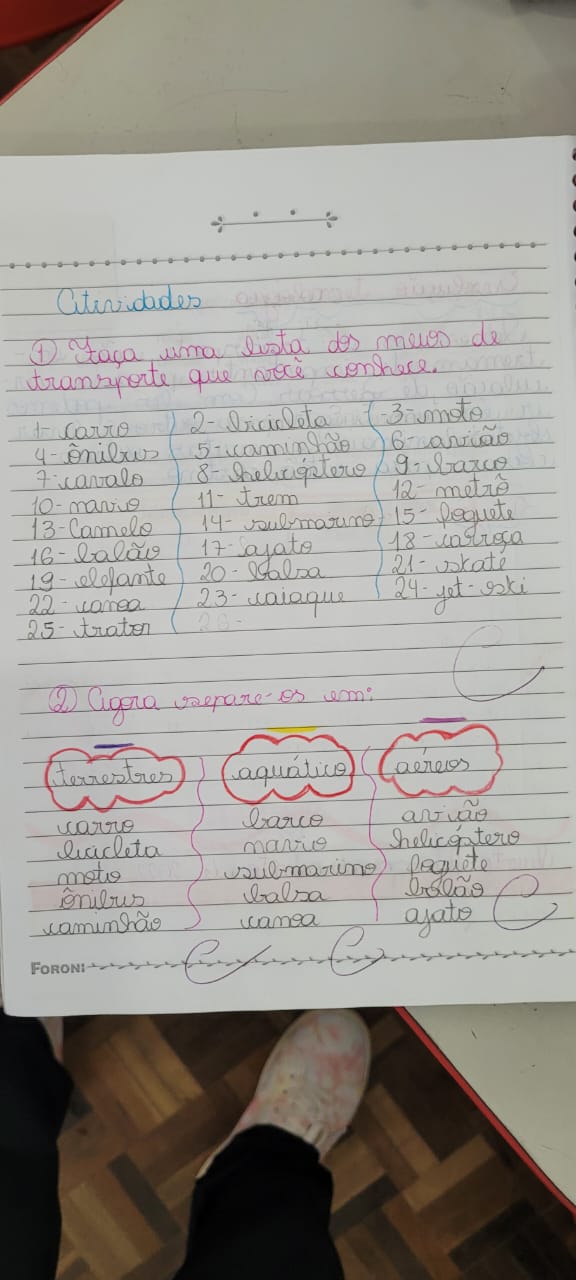 Atividades
① Faça uma lista dos meios de
transporte que você conhece.
1- carro 2- bicicleta 3- moto
4- ônibus 5- caminhão 6- avião
7- cavalo 8- helicóptero 9- barco
10- navio 11- trem 12- metrô
13- Camelo 14- submarino 15- foguete
16- balão 17- ajato 18- carroça
19- elefante 20- balsa 21- skate
22- canoa 23- caiaque 24- jet-ski
25- trator 26-
② Agora separe-os em:
terrestres aquático aéreos
carro barco avião
bicicleta navio helicóptero
moto submarino foguete
ônibus balsa balão
caminhão canoa ajato
FORONI